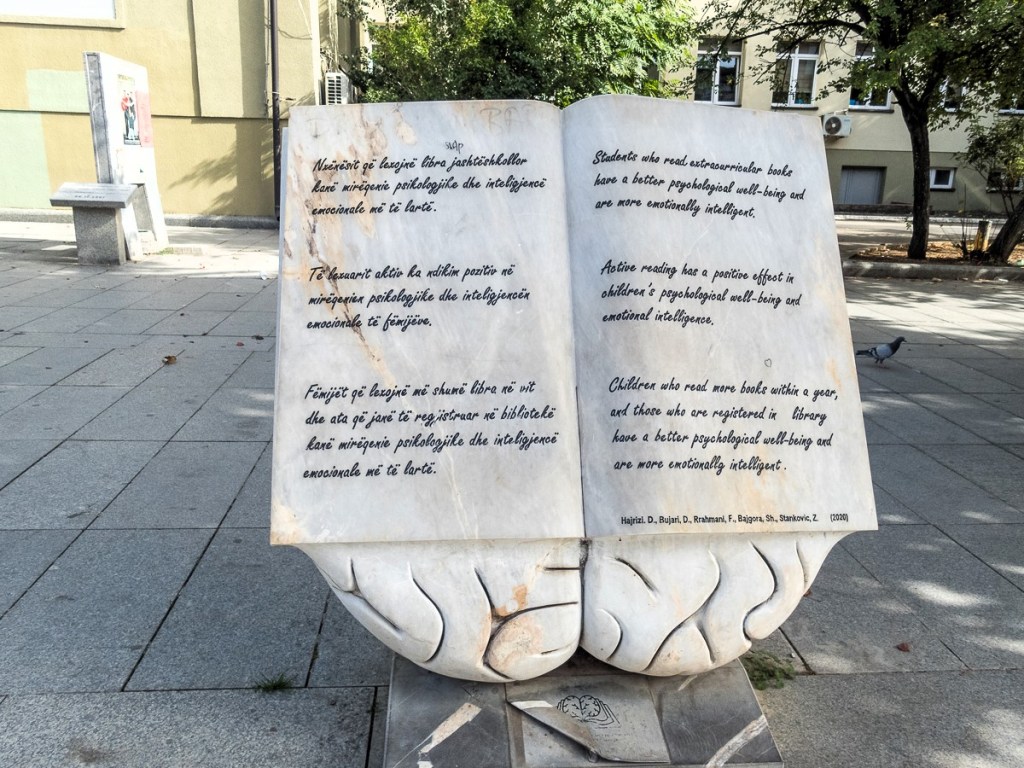 Nxënësit që lexojnë libra jashtëshkollor
kanë mirëqenie psikologjike dhe inteligjencë
emocionale më të lartë.
Të lexuarit aktiv ka ndikim pozitiv në
mirëqenien psikologjike dhe inteligjencën
emocionale të fëmijëve.
Fëmijët që lexojnë më shumë libra në vit
dhe ata që janë të regjistruar në bibliotekë
kanë mirëqenie psikologjike dhe inteligjencë
emocionale më të lartë.
Students who read extracurricular books
have a better psychological well-being and
are more emotionally intelligent.
Active reading has a positive effect in
children's psychological well-being and
emotional intelligence.
Children who read more books within a year,
and those who are registered in library
have a better psychological well-being and
are more emotionally intelligent.
Hajrizi. D., Bujari, D., Rrahmani, F., Bajgora, Sh., Stankovic, Z. (2020)